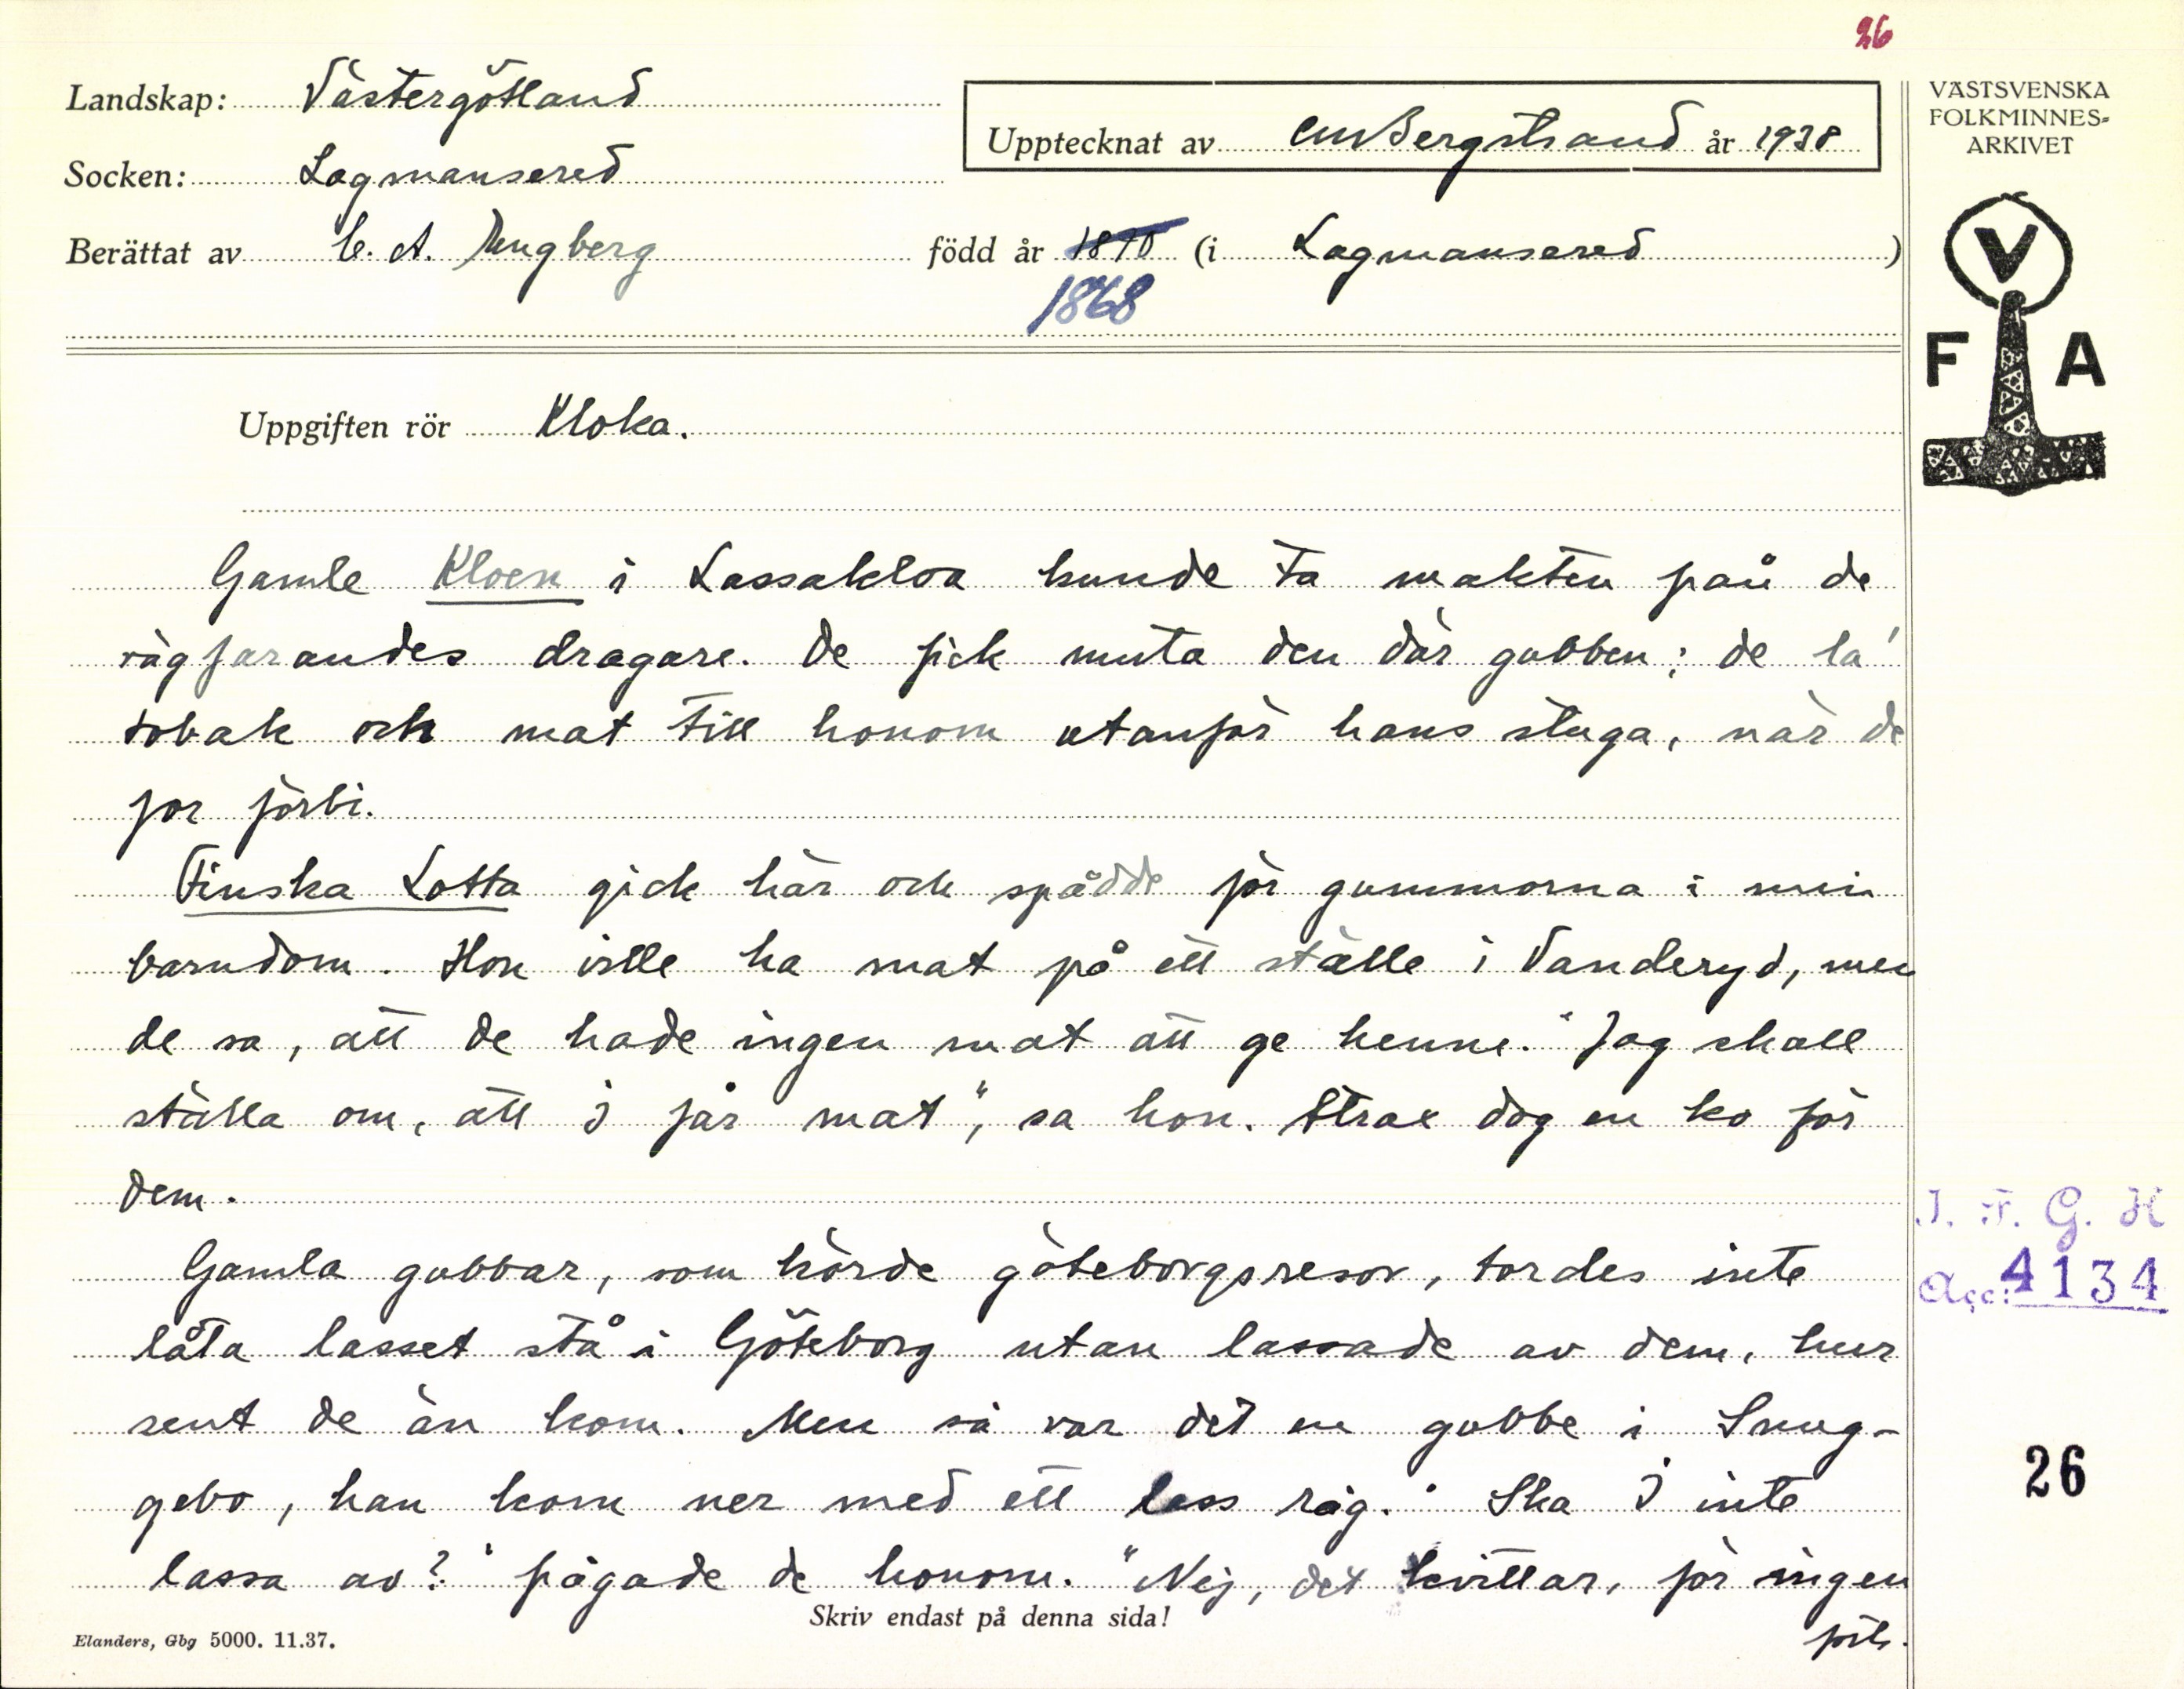 26
Landskap: Västergötland
Upptecknat av CMBergstrand år 1938
VÄSTSVENSKA
FOLKMINNES=
ARKIVET
Socken: Lagmansered
Berättat av C. A. Ungberg född år 1870 (i Lagmansered )
1868
V
F A
Uppgiften rör Kloka.
Gamle Kloen i Lassakloa kunde ta makten på de
vägfarandes dragare. De fick muta den där gubben; de la'
tobak och mat till honom utanför hans stuga, när de
for förbi.
Finska Lotta gick här och spådde för gummorna i min
barndom. Hon ville ha mat på ett ställe i Vanderyd, men
de sa, att de hade ingen mat att ge henne. "Jag skall
ställa om, att I får mat", sa hon. Strax dog en ko för
dem.
Gamla gubbar, som körde göteborgsresor, tordes inte
låta lasset stå i Göteborg utan lassade av dem, hur
sent de än kom. Men så var det en gubbe i Snug-
gebo, han kom ner med ett lass råg. "Ska I inte
lassa av?" frågade de honom. "Nej, det kvittar, för ingen
forts.
I. F. G. H
Acc: 4134
26
Skriv endast på denna sida!
Elanders, Gbg 5000. 11.37.